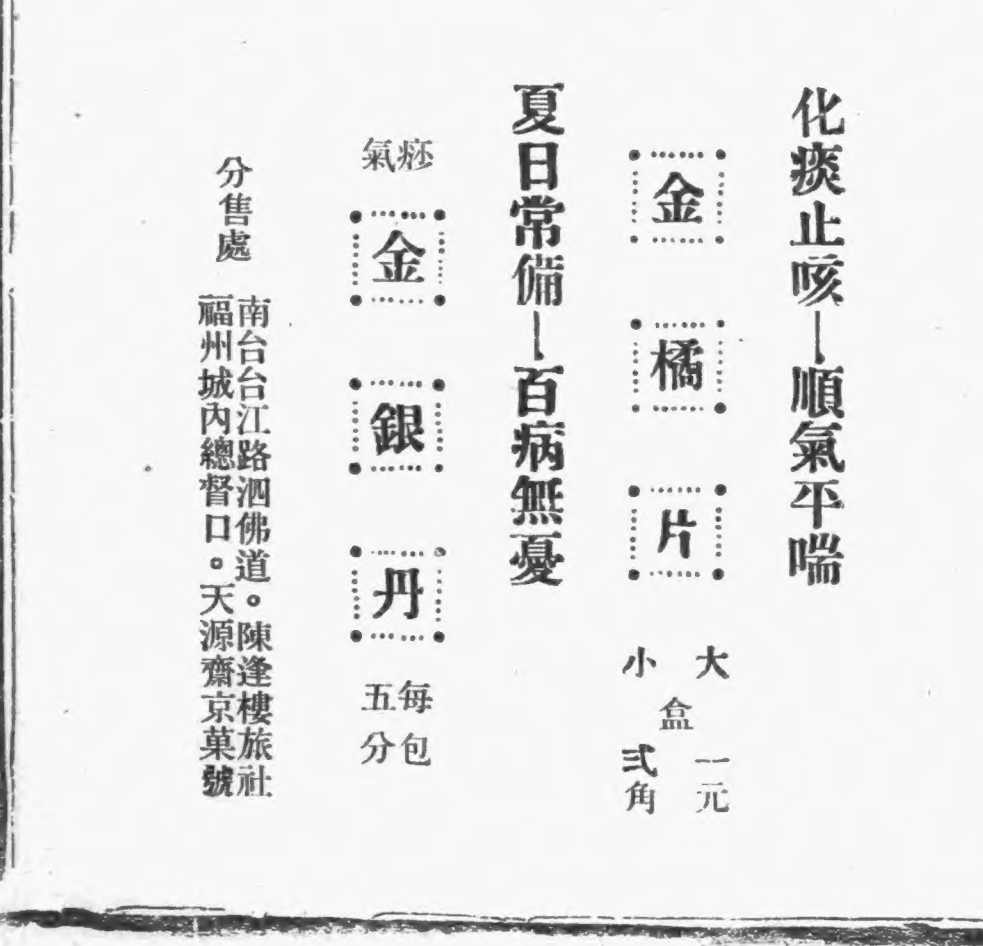 化痰止咳—順氣平喘
金橘片
大盒一元
小盒弍角
夏日常備—百病無憂
痧氣
金銀丹
每包
五分
分售處
南台台江路泗佛道。陳逢樓旅社
福州城內總督口。天源齋京菓號